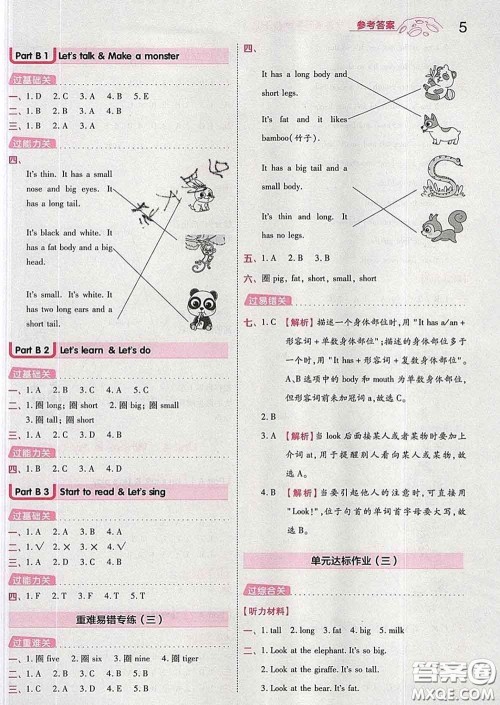 参考答案
5
Part B 1 Let's talk & Make a monster
过基础关
一、1. D 2. C 3. A 4. B 5. E
二、1. B 2. C 3. A 4. B
三、1. B 2. A
过能力关
四、
It's thin. It has a small
nose and big eyes. It
has a long tail.
It's black and white. It
has a fat body and a big
head.
It's small. It's white. It
has two long ears and
a short tail.
Part B 2 Let's learn & Let's do
过基础关
一、1. A 2. B 3. C 4. A
二、1. 圈 long; 圈 short 2. 圈 big; 圈 small
3. 圈 tall; 圈 short
过能力关
四、1. C 2. A 3. A 4. D
Part B 3 Start to read & Let's sing
过基础关
一、1. B 2. C 3. A 4. D
二、1. ✓ 2. × 3. × 4. ✓
三、1. B 2. C 3. A
过能力关
四、1. F 2. T 3. T 4. F
重难易错专练（三）
过重难关
一、1. 圈 five 2. 圈 six 3. 圈 nine 4. 圈 tiger
二、1. A 2. B 3. A 4. A
三、1. B 2. A 3. B 4. B
四、
It has a long body and
short legs.
It's fat and it likes
bamboo(竹子).
It has a big tail and a
small body.
It's thin and long. It
has no legs.
五、1. A 2. A 3. B
六、圈 pig, fat, short, small, short
过易错关
七、1. C 【解析】描述一个身体部位时，用 "It has a/an +
形容词 + 单数身体部位"，描述多个身体部位多于
一个时，用 "It has + 形容词 + 复数身体部位"。
A、B 选项中的 body 和 mouth 为单数身体部位，
但形容词前未加冠词 a，故选 C。
2. B
3. A 【解析】当 look 后面接某人或者某物时要加上
介词 at，用于提醒别人看向某人或某物，故
选 A。
4. B 【解析】当要引起他人的注意时，可直接用
"Look!"，位于句首的单词首字母要大写，故
选 B。
单元达标作业（三）
过综合关
【听力材料】
一、1. tall 2. long 3. fat 4. big 5. small
二、1. Look at the elephant. It's big.
2. Look at the giraffe. It's tall.
3. Look at the bear. It's fat.
答案圈
MXQE.COM